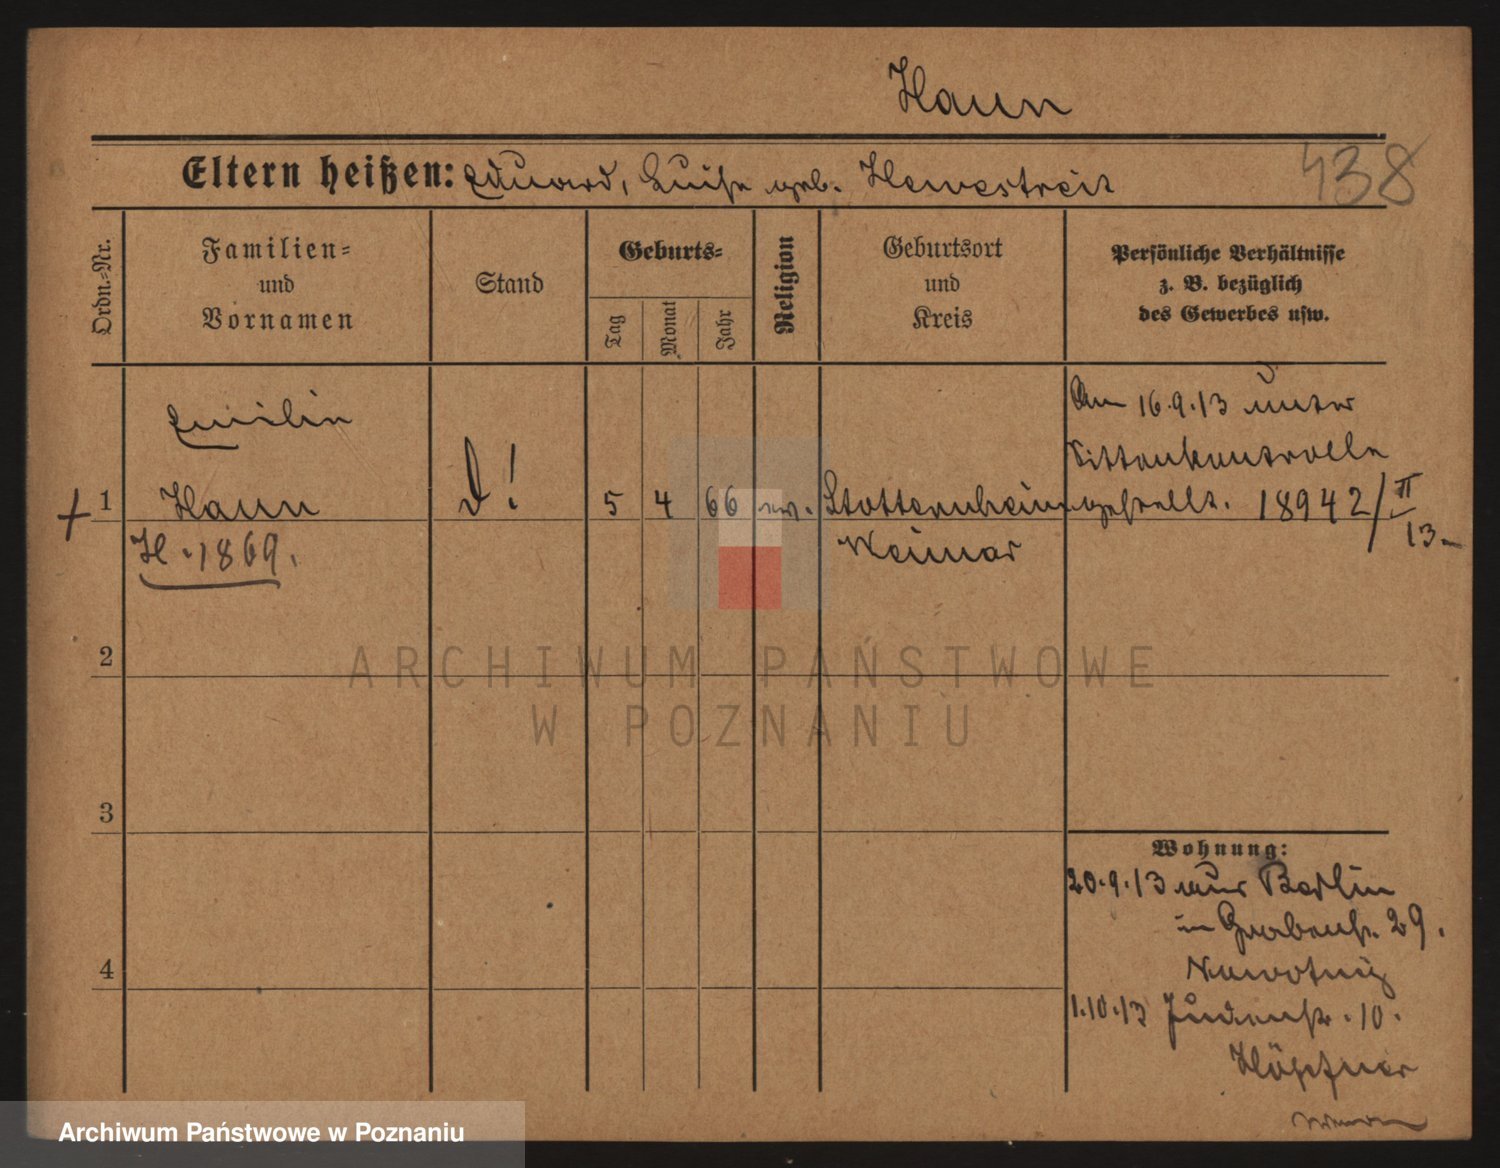 Haun
438
Eltern heißen: Eduard, Luise geb. Hewestreit
Ordn.-Nr.
Familien-
und
Vornamen
Stand
Geburts-
Tag
Monat
Jahr
Religion
Geburtsort
und
Kreis
Persönliche Verhältnisse
z. B. bezüglich
des Gewerbes usw.
Emilie
Am 16.9.13 unter
Sittenkontrolle
1 Haun D! 5 4 66 ev. Stotternheim gestellt. 18942/II
13.
H. 1869.
Weimar
2
3
4
Wohnung:
20.9.13 aus Berlin
in Grabenstr. 29.
1.10.13 Judenstr. 10.
Höpfner
ARCHIWUM PAŃSTWOWE
W POZNANIU
Archiwum Państwowe w Poznaniu